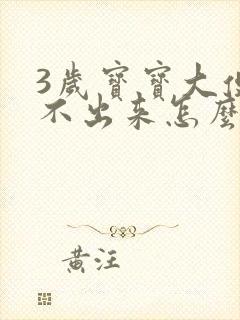 3歲寶寶大
不出来怎麼
黄汪